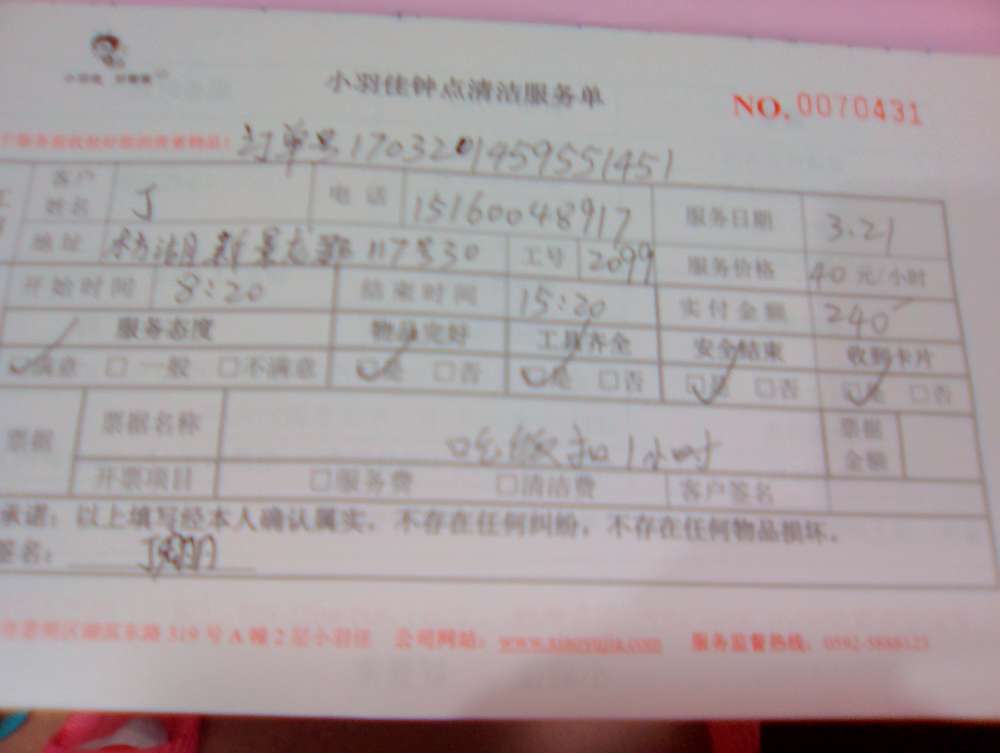 小羽佳钟点清洁服务单 NO.0070431
订单号170320145955 1451
客户姓名 丁 电话 15160048917 服务日期 3.21
地址 枋湖新景 117 530 工号 2099 服务价格 40元/小时
开始时间 8:20 结束时间 15:20 实付金额 240
服务态度 物品完好 工具齐全 安全结束 收到卡片
满意 □一般 □不满意 是 □否 是 □否 是 □否 是 □否
票据 票据名称 吃饭扣1小时 票据金额
开票项目 □服务费 □清洁费 客户签名
承诺:以上填写经本人确认属实,不存在任何纠纷,不存在任何物品损坏。
签名:
思明区湖滨东路319号A幢2层小羽佳 公司网站:www.xiaoyujia.com 服务监督热线:0592-5888123